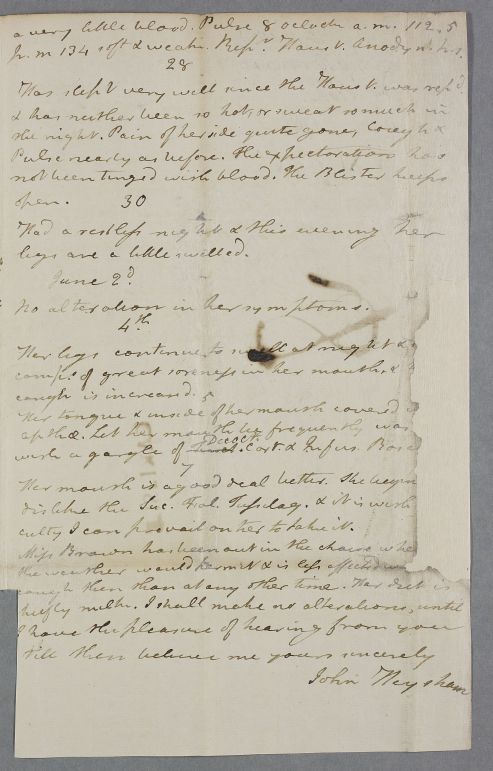 a very little blood. Pulse 8 oclock a.m. 112. 5
p. m 134 soft & weak. Rep.t Haust. Anodyn. h.s.
28
Has slept very well since the Haust. was rep.d
& has neither been so hot, or sweat so much in
the night. Pain of her side quite gone, Cough &
Pulse nearly as before. The expectoration has
not been tinged with blood. The Blister keeps
open. 30
Had a restless night & this evening her
legs are a little swelled.
June 2d
No alteration in her symptoms.
4th
Her legs continue to swell at night &
comp.s of great soreness in her mouth, &
cough is increased. 5
Her tongue & inside of her mouth covered
apthæ. Let her mouth be frequently was
with a gargle of Decoct. Cort. & Infus. Rosæ
7
Her mouth is a good deal better. She begins
dislike the Suc. Fol. Tussilag. & it is with
culty I can prevail on her to take it.
Miss Brown has been out in the chaise whe
the weather would permit & is less affected
cough then than at any other time. Her diet is
chiefly milk. I shall make no alterations, until
I have the pleasure of hearing from you
till then believe me yours sincerely
John Heysham